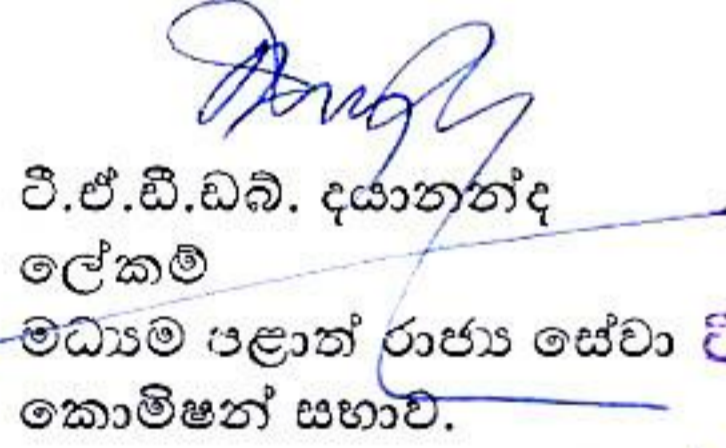 ටී.ඒ.ඩී.ඩබ්. දයානන්ද
ලේකම්
මධ්‍යම පළාත් රාජ්‍ය සේවා
කොමිෂන් සභාව.